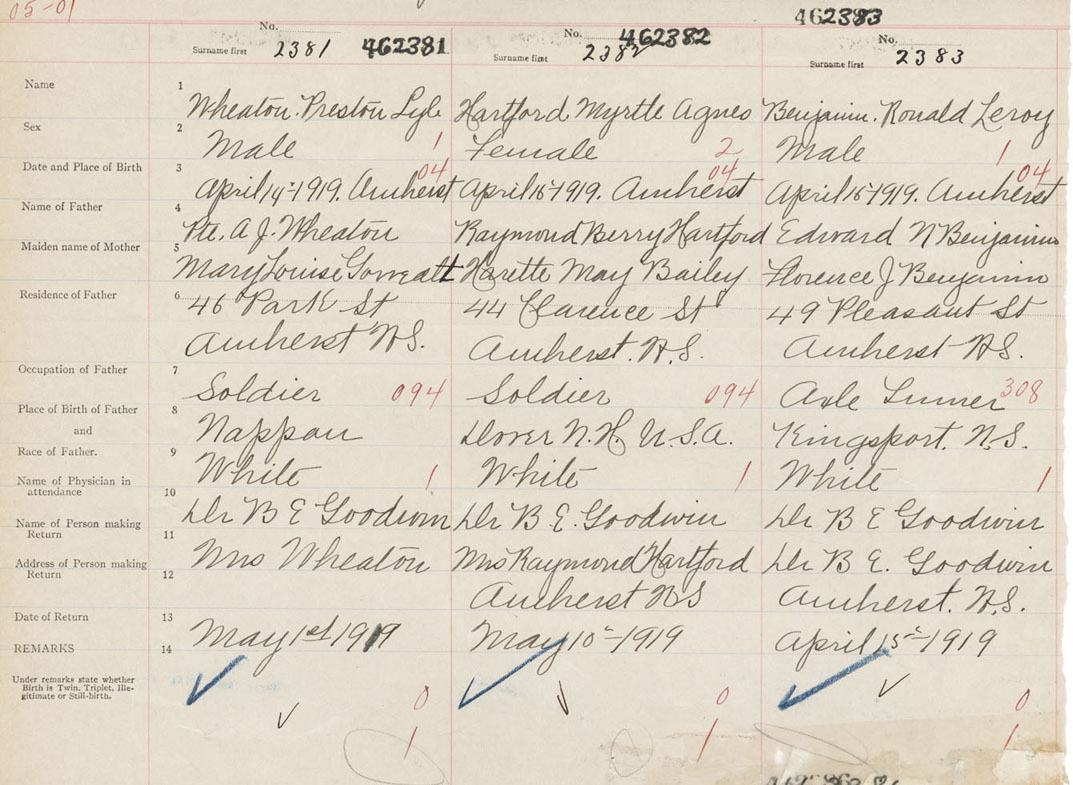 05-01
No. 2381 462381
Surname first
No. 2382 462382
Surname first
462383
No. 2383
Surname first
Name 1 Wheaton. Preston Lyle Hartford Myrtle Agnes Benjamin. Ronald Leroy
Sex 2 Male 1 Female 2 Male 1
Date and Place of Birth 3 April 14-1919. Amherst 04 April 15-1919. Amherst 04 April 15-1919. Amherst 04
Name of Father 4 Pte. A J. Wheaton Raymond Berry Hartford Edward N Benjamin
Maiden name of Mother 5 Mary Louise Harette May Bailey Florence J Benjamin
Residence of Father 6 46 Park St 44 Clarence St 49 Pleasant St
Amherst N.S. Amherst. N.S. Amherst N.S.
Occupation of Father 7 Soldier 094 Soldier 094 Axle Turner 308
Place of Birth of Father 8 Nappan Dover N.H. U.S.A. Kingsport. N.S.
and
Race of Father. 9 White 1 White 1 White 1
Name of Physician in
attendance 10 Dr B E Goodwin Dr B E. Goodwin Dr B E Goodwin
Name of Person making
Return 11 Mrs Wheaton Mrs Raymond Hartford Dr B E. Goodwin
Address of Person making
Return 12 Amherst NS Amherst. N.S.
Date of Return 13 May 1st 1919 May 10-1919 April 15-1919
REMARKS 14
Under remarks state whether
Birth is Twin, Triplet, Ille-
gitimate or Still-birth.
0 0 0
1 1 1